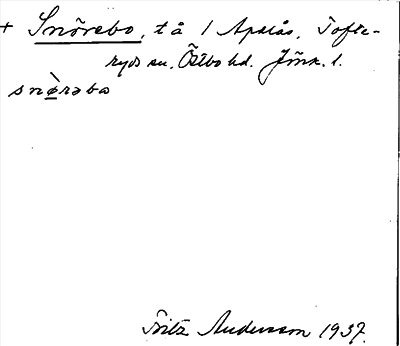 + Snörebo, tå 1 Apelås, Tofte-
ryds sn. Östbo hd. Jönk. l.
snø̀rəbo
Fritz Andersson 1937.